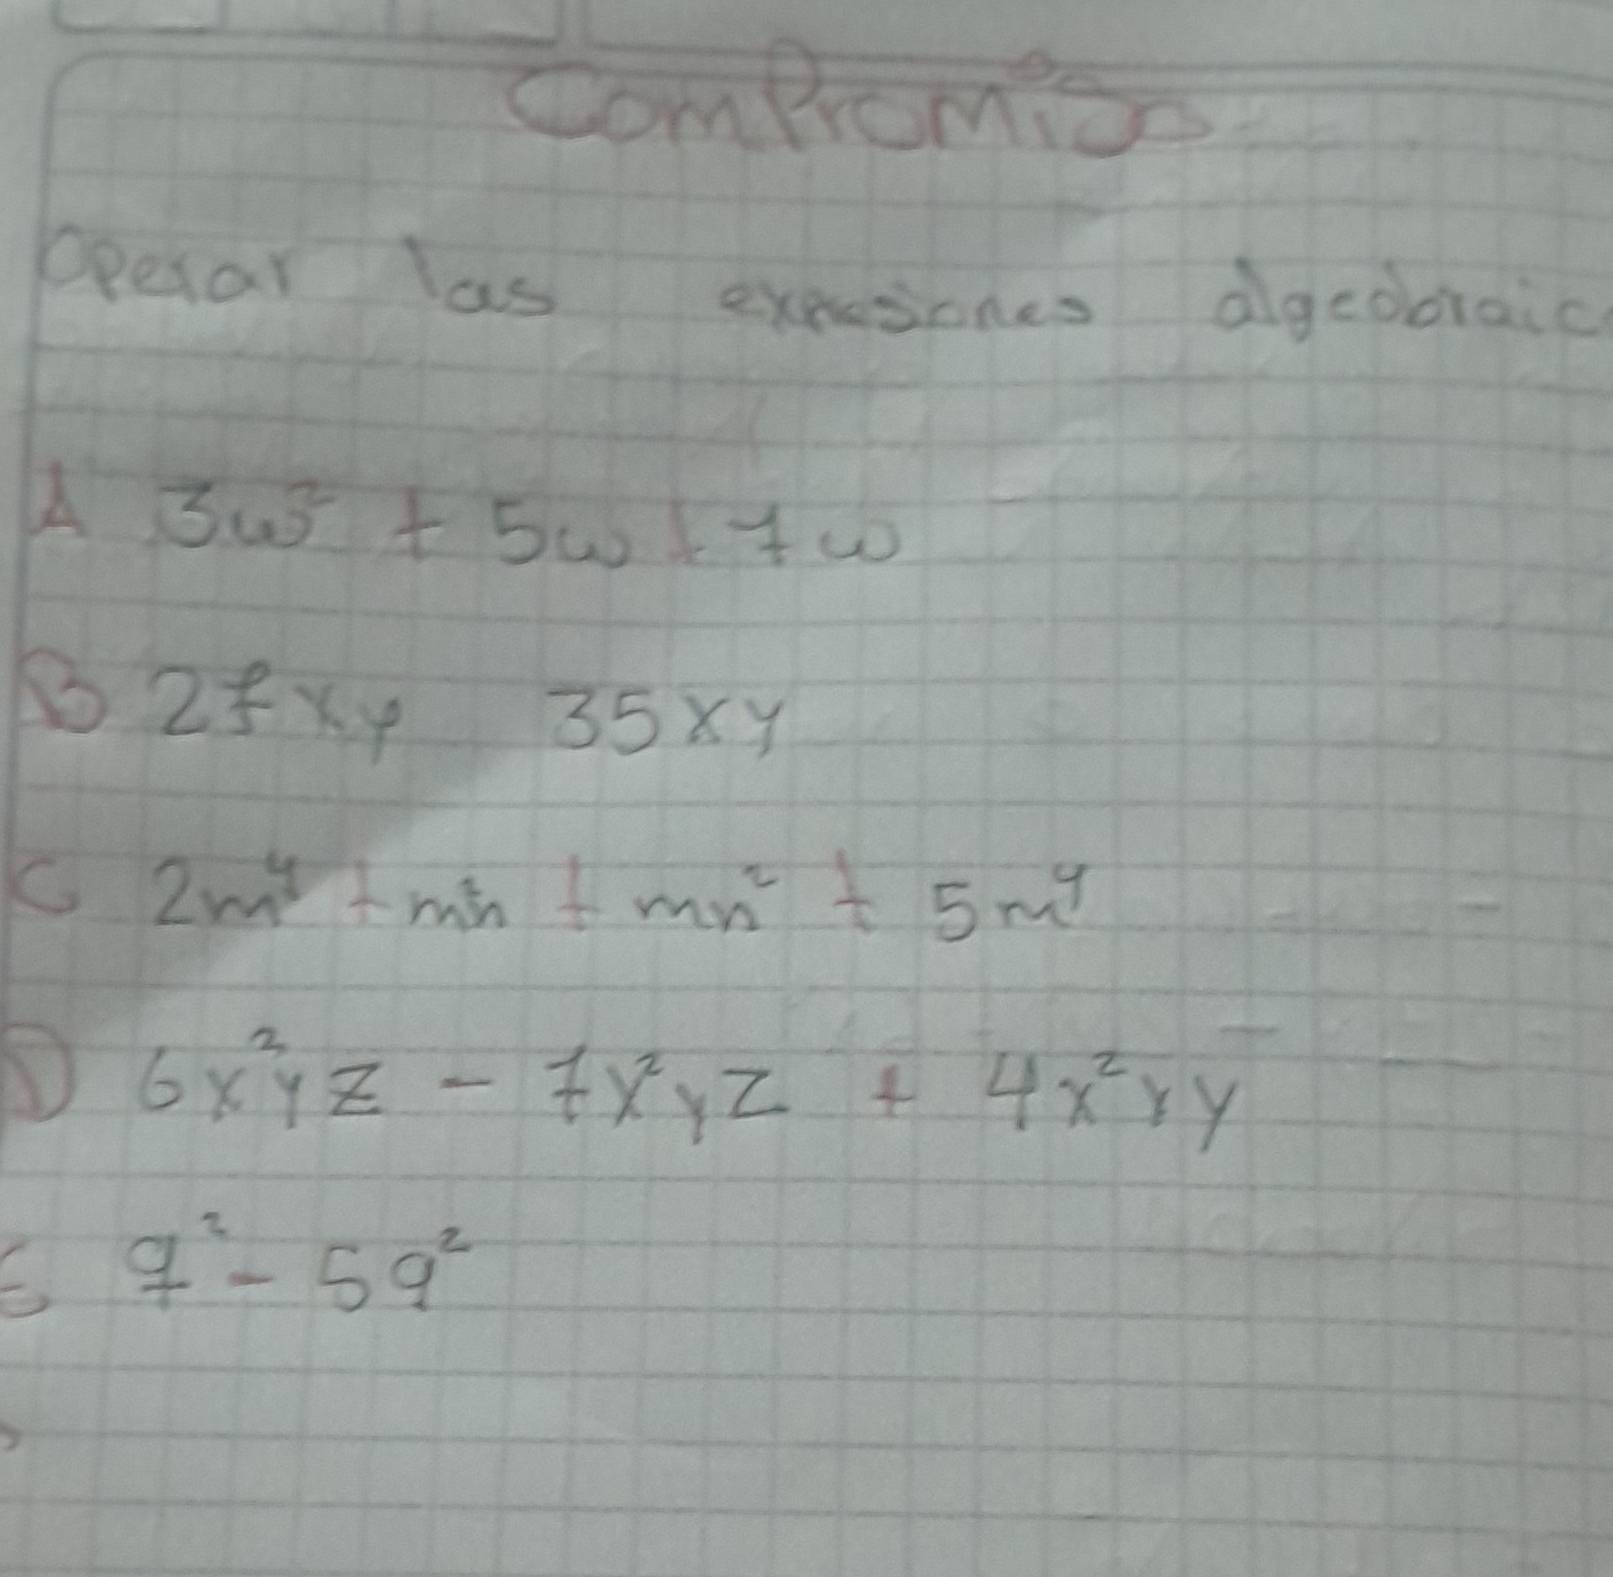 Compromiso
Operar las expresiones algedbraic
A 3w² + 5w + 7w
B 27xy 35xy
C 2m⁴ + m²n + mn² + 5m⁴
D 6x²yz - 7x²yz + 4x²yy
E q² - 5q²